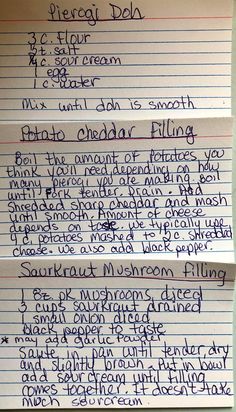 Pierogi Doh
3 c. flour
t. salt
c. sour cream
1 egg
1 c. water
Mix until doh is smooth
Potato cheddar filling
Boil the amount of potatoes you
think you'll need, depending on how
many pierogi you are making. Boil
until fork tender. Drain. Add
Shredded sharp cheddar and mash
until smooth. Amount of cheese
depends on taste. We typically use
potatoes mashed to shredded
cheese. We also add black pepper.
Saurkraut Mushroom filling
1 8z. pk mushrooms, diced
3 cups saurkraut drained
1 small onion diced
black pepper to taste
* may add garlic powder
Saute in pan until tender, dry
and slightly brown. Put in bowl
add sour cream until filling
comes together. It doesn't take
much sourcream.